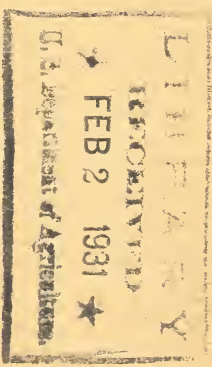 LIBRARY
RECEIVED
★ FEB 2 1931 ★
U. S. Department of Agriculture